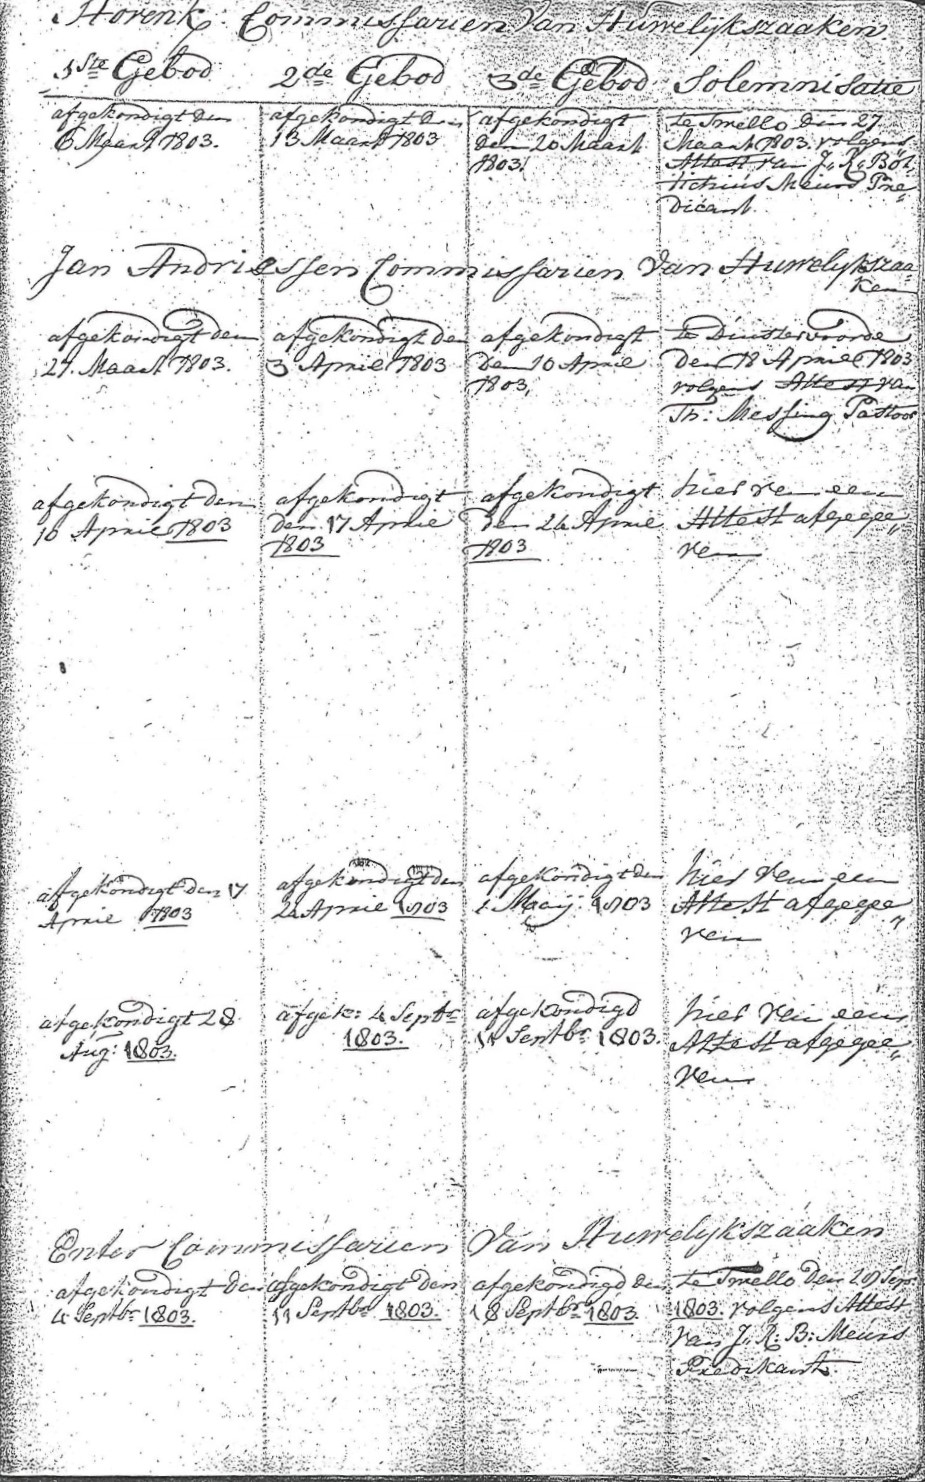 Horenk: Commissarien Van Huwelijkszaaken
1ste Gebod
2de Gebod
3de Gebod
Solemnisatie
afgekondigt den
6 Maart 1803.
afgekondigt den
13 Maart 1803
afgekondigt
den 20 Maart
1803.
te Twello den 27
Maart 1803. volgens
Attest van J. R. Böl„
Meurs Pre„
dicant.
Jan Andriessen Commissarien Van Huwelijkszaa„
ken
afgekondigt den
27. Maart 1803.
afgekondigt den
3 April 1803
afgekondigt
den 10 April
1803,
te Duistervoorde
den 18 April 1803
volgens Attest van
Th: Messing Pastoor
afgekondigt den
10 April 1803
afgekondigt
den 17 April
1803
afgekondigt
den 24 April
1803
hier van een
Attest afgegee„
ven
afgekondigt den 17
April 1803
afgekondigt den
24 April 1803
afgekondigt den
1 Maay 1803
hier van een
Attest afgegee„
ven
afgekondigt 28
Aug: 1803.
afgek: 4 Septbr
1803.
afgekondigd
11 Septbr 1803.
hier van een
Attest afgegee„
ven
Enter Commissarien Van Huwelijkszaaken
afgekondigt den
4 Septbr 1803.
afgekondigt den
11 Septbr 1803.
afgekondigd den
18 Septbr 1803.
te Twello den Sep:
1803. volgens Attest
van J. R: B: Meurs
Predikant.